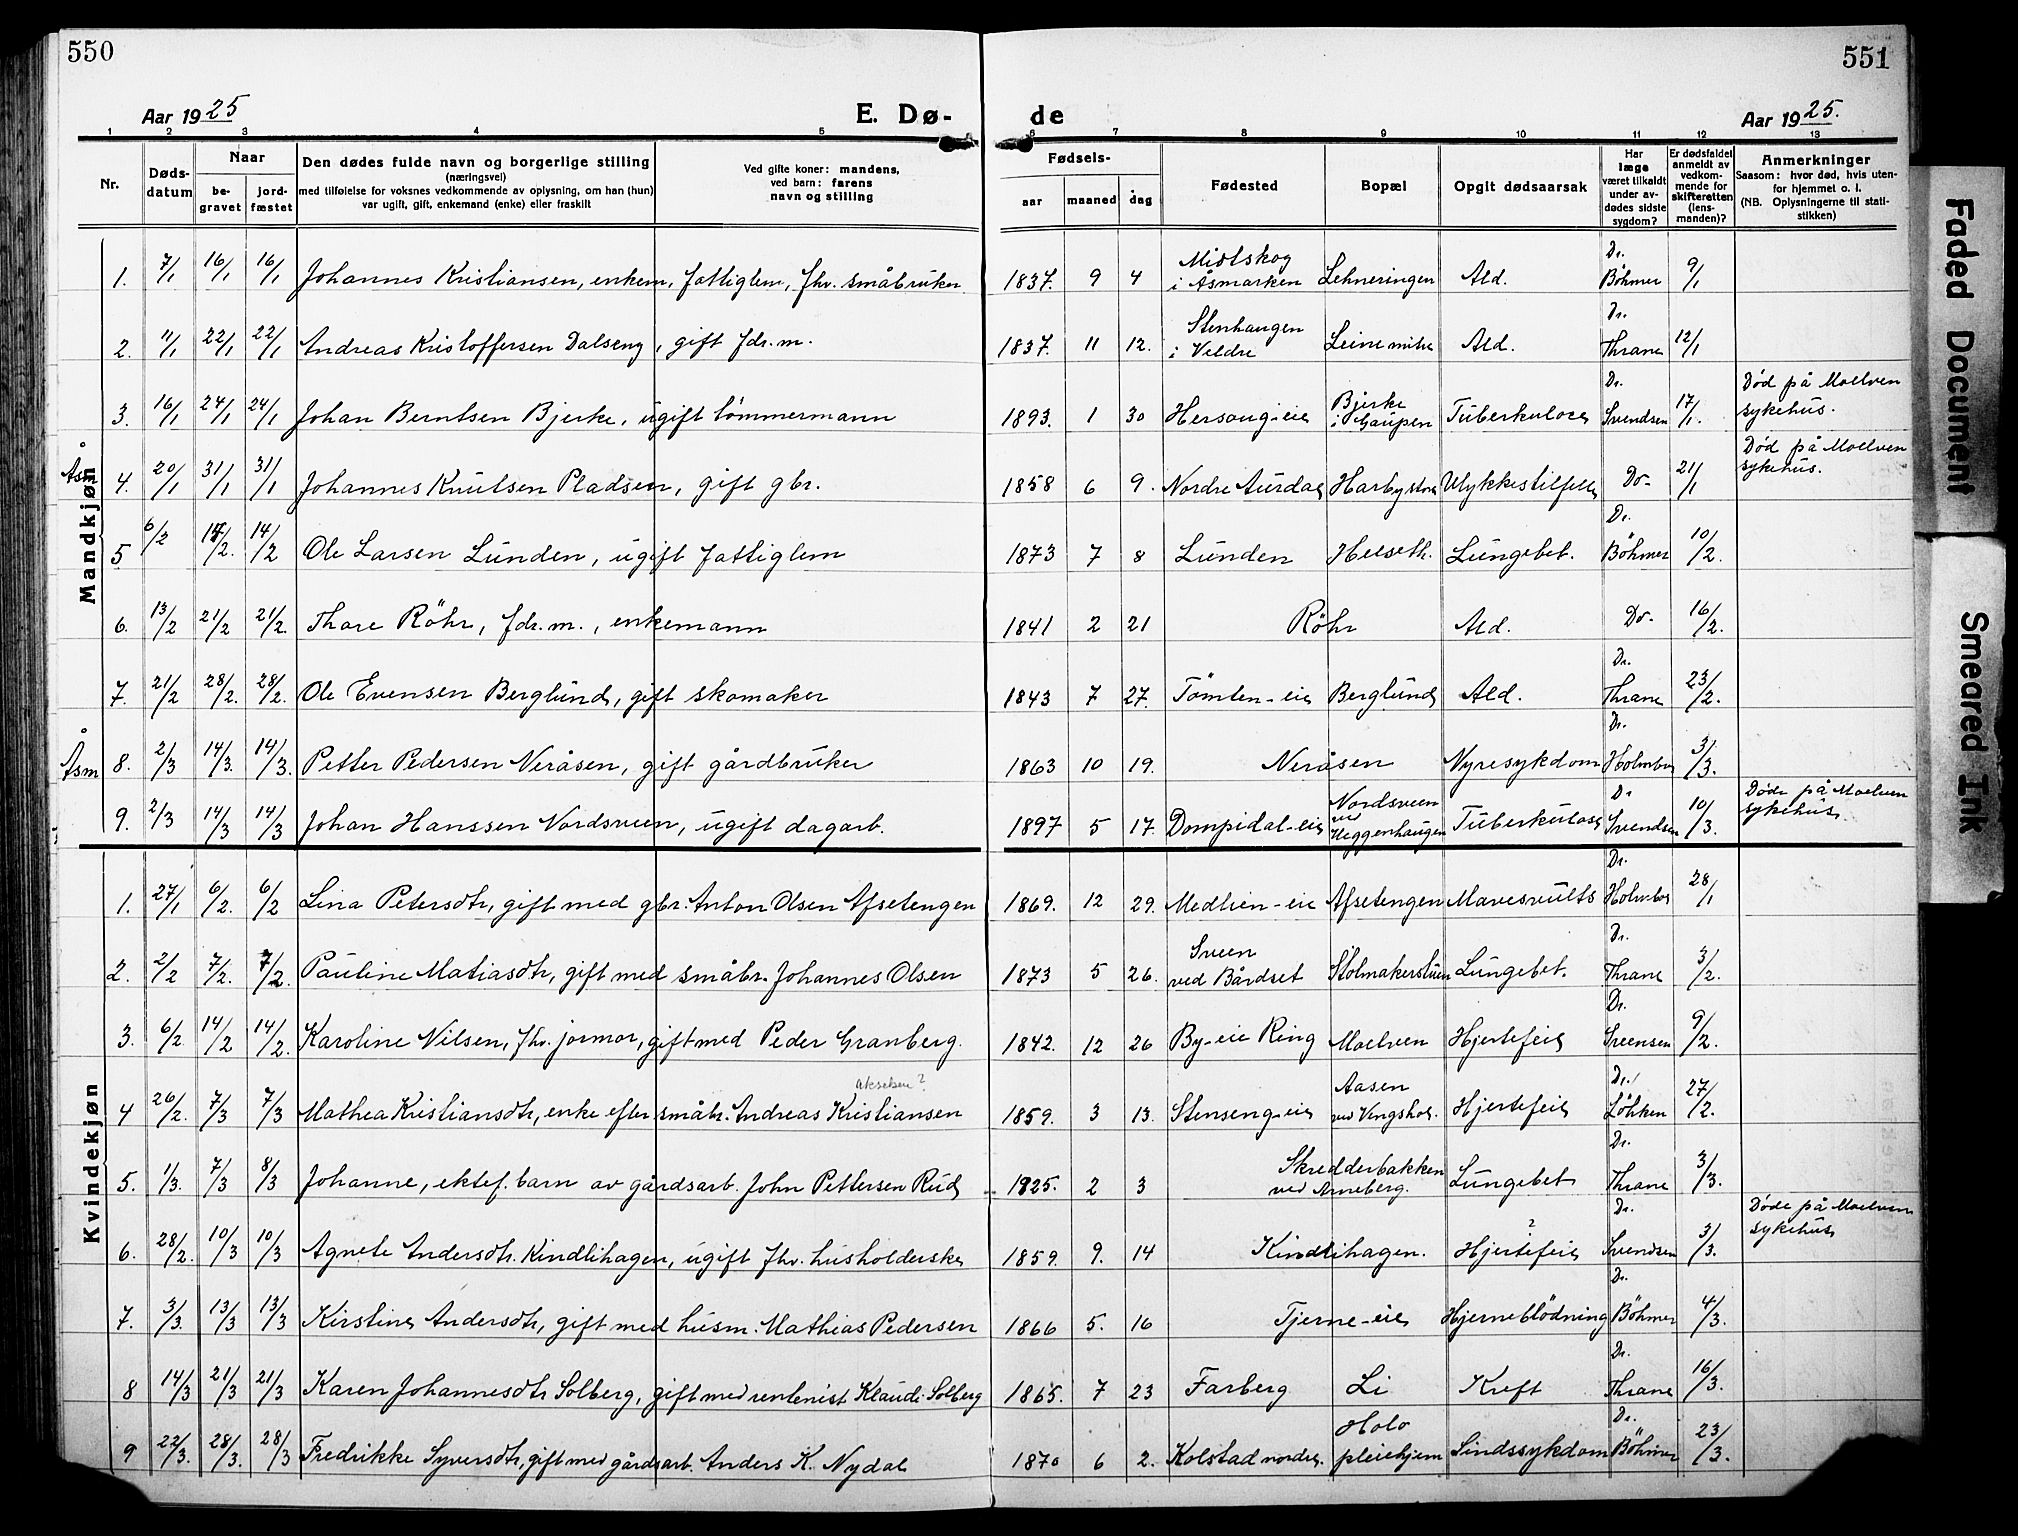 550
551
Aar 1925
E. Dø-
de
Aar 1925.
1 2 3 4 5 6 7 8 9 10 11 12 13
Nr.
Døds-
datum
Naar
be-
gravet
jord-
fæstet
Den dødes fulde navn og borgerlige stilling
(næringsvei)
med tilføielse for voksnes vedkommende av oplysning, om han (hun)
var ugift, gift, enkemand (enke) eller fraskilt
Ved gifte koner: mandens,
ved barn: farens
navn og stilling
Fødsels-
aar maaned dag
Fødested
Bopæl
Opgit dødsaarsak
Har
læge
været tilkaldt
under av-
dødes sidste
sygdom?
Er dødsfaldet
anmeldt av
vedkom-
mende for
skifteretten
(lens-
manden)?
Anmerkninger
Saasom: hvor død, hvis uten-
for hjemmet o. l.
(NB. Oplysningerne til stati-
stikken)
Mandkjøn
1. 7/1 16/1 16/1 Johannes Kristiansen, enkem, fattiglem, fhv. småbruker 1837. 9 4 Midtskog i Åsmarken Lehneringen Ald. Dr. Böhmer 9/1
2. 11/1 22/1 22/1 Andreas Kristoffersen Dalseng, gift fdr. m. 1837. 11 12. Stenhaugen i Veldre Ald. Dr. Thrane 12/1
3. 16/1 24/1 24/1 Johan Berntsen Bjerke, ugift tømmermann 1893. 1 30 Hersoug-eie Bjerke i Gaupen Tuberkulose Dr. Svendsen 17/1. Død på Moelven sykehus.
Åsm 4. 20/1 31/1 31/1 Johannes Knutsen Pladsen, gift gbr. 1858 6 9. Nordre Aurdal Harbystoen Ulykkestilfelle Do- 21/1 Død på Moelven sykehus.
5 6/2 14/2. 14/2 Ole Larsen Lunden, ugift fattiglem 1873 7 8 Lunden Helseth. Lungebet. Dr. Böhmer 10/2.
6. 13/2 21/2 21/2. Thore Röhr, fdr. m., enkemann 1841 2 21 Röhr Ald. Do- 16/2.
7. 21/2 28/2. 28/2. Ole Evensen Berglund, gift skomaker 1843 7 27. Tømten-eie Berglund Ald. Dr. Thrane 23/2.
Åsm 8. 2/3 14/3. 14/3. Petter Pedersen Neråsen, gift gårdbruker 1863 10 19. Neråsen Nyresykdom Dr. Holmboe 3/3.
9. 2/3 14/3 14/3 Johan Hanssen Nordsveen, ugift dagarb. 1897 5 17. Dompidal-eie Nordsveen ved Heggenhaugen Tuberkulose Dr Svendsen 10/3. Døde på Moelven sykehus
Kvindekjøn
1. 27/1 6/2. 6/2 Lina Petersdtr, gift med gbr. Anton Olsen Afsetengen 1869. 12 29. Medlien-eie Afsetengen Mavesvulst Dr. Holmboe 28/1
2. 2/2 7/2. 7/2. Pauline Matiasdtr, gift med småbr. Johannes Olsen 1873 5 26. Sveen ved Bårdset Stolmakerstuen Lungebet. Dr. Thrane 3/2.
3. 6/2 14/2 14/2. Karoline Nilsen, fhv. jormor, gift med Peder Granberg. 1842. 12 26 By-eie Ring Moelven Hjertefeil Dr. Sveensen 9/2.
Akselsen?
4 26/2. 7/3 7/3 Mathea Kristiansdtr, enke efter småbr. Andreas Kristiansen 1859. 3 13. Stenseng-eie Aasen ved Vengshol. Hjertefeil Dr. Løhken 27/2.
5. 1/3. 7/3 8/3 Johanne, ektef. barn av gårdsarb. John Pettersen Rud 1925. 2 3 Skredderbakken ved Arneberg. Lungebet Dr. Thrane 3/3.
6. 28/2. 10/3 10/3 Agnete Andersdtr. Kindlihagen, ugift fhv. husholderske 1859. 9. 14 Kindlihagen. Hjertefeil ? Dr. Svendsen 3/3. Døde på Moelven sykehus
7. 3/3. 13/3 13/3 Kirstine Andersdtr, gift med husm. Mathias Pedersen 1866 5. 16 Tjerne-eie Hjerneblödning Dr. Böhmer 4/3.
8 14/3 21/3 21/3 Karen Johannesdtr Solberg, gift med rentenist Klaudi Solberg 1865. 7 23 Farberg Li Kreft Dr. Thrane 16/3.
9 22/3. 28/3. 28/3 Fredrikke Syversdtr, gift med gårdsarb. Anders K. Nydal 1870 6 2. Kolstad nordre. Holo pleiehjem Sindssykdom Dr. Böhmer 23/3.
Faded Document
Smeared Ink